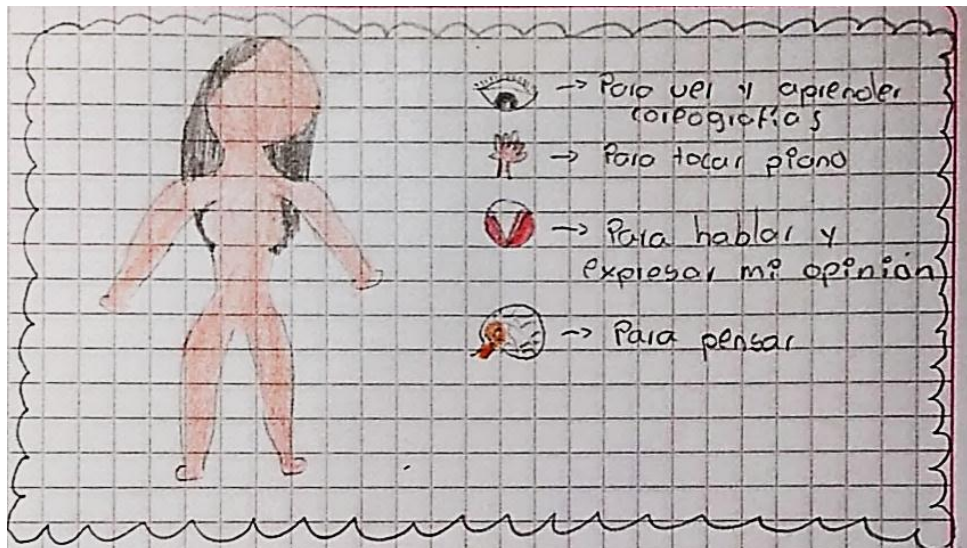 → Para ver y aprender
coreografías
→ Para tocar piano
→ Para hablar y
expresar mi opinión
→ Para pensar